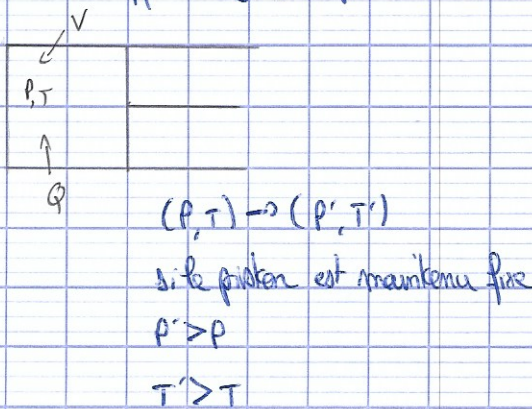 V
P,T
Q
(P,T) → (P',T')
si le piston est maintenu fixe
P' > P
T' > T